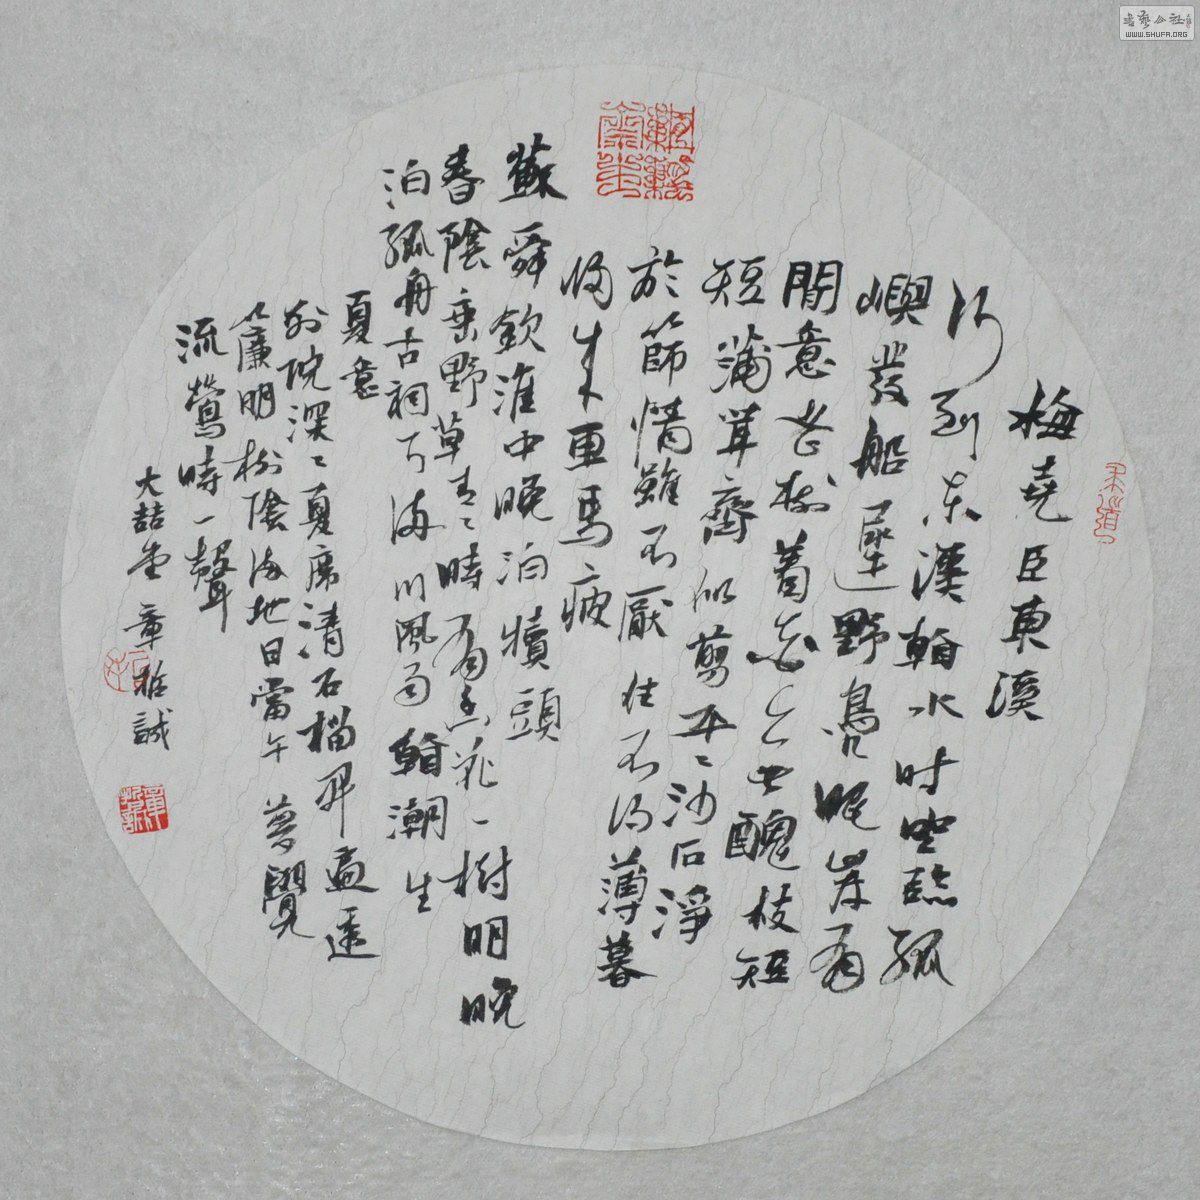 梅堯臣東溪
行到东溪看水时坐臨孤
嶼發船遲野鳧眠岸有
閒意老樹着花無醜枝短
短蒲茸齊似剪平〻沙石淨
於篩情雖不厭住不得薄暮
归来車馬疲
蘇舜欽淮中晚泊犢頭
春陰垂野草青〻時有幽花一樹明晚
泊孤舟古祠下满川風雨看潮生
夏意
別院深〻夏席清石榴開遍透
簾明樹陰满地日當午夢覺
流鶯時一聲
大喆堂 章哲誠
章哲誠
書藝公社
WWW.SHUFA.ORG